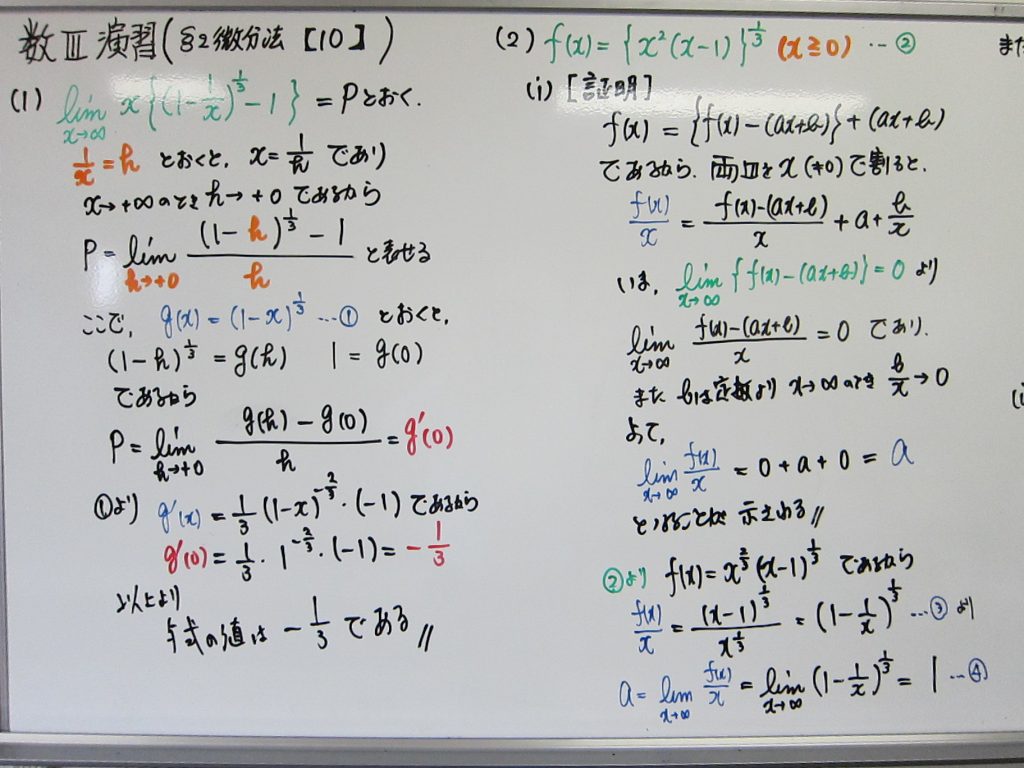 数Ⅲ 演習(§2微分法 [10])
(1) lim x→∞ x{(1-1/x)^(1/3)-1} = Pとおく.
1/x=h とおくと, x=1/h であり
x→+∞のときh→+0 であるから
P=lim h→+0 ((1-h)^(1/3)-1)/h と表せる
ここで, g(x)=(1-x)^(1/3) …① とおくと,
(1-h)^(1/3)=g(h) 1=g(0)
であるから
P=lim h→+0 (g(h)-g(0))/h=g'(0)
①より g'(x)=1/3(1-x)^(-2/3)・(-1) であるから
g'(0)=1/3・1^(-2/3)・(-1)=-1/3
以上より
与式の値は -1/3 である//
(2) f(x)={x²(x-1)}^(1/3) (x≧0) …②
(i) [証明]
f(x)={f(x)-(ax+b)}+(ax+b)
であるから. 両辺をx(≠0)で割ると.
f(x)/x=(f(x)-(ax+b))/x+a+b/x
いま, lim x→∞ {f(x)-(ax+b)}=0 より
lim x→∞ (f(x)-(ax+b))/x=0 であり.
また bは定数より x→∞のとき b/x→0
よって,
lim x→∞ f(x)/x=0+a+0=a
ということが 示される//
②より f(x)=x^(2/3)(x-1)^(1/3) であるから
f(x)/x=(x-1)^(1/3)/x^(1/3)=(1-1/x)^(1/3) …③ より
a=lim x→∞ f(x)/x=lim x→∞ (1-1/x)^(1/3)=1 …④
また
(i